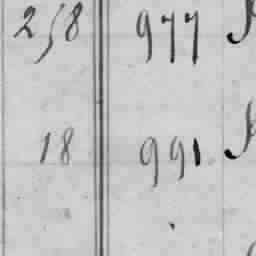 258 977
18 991